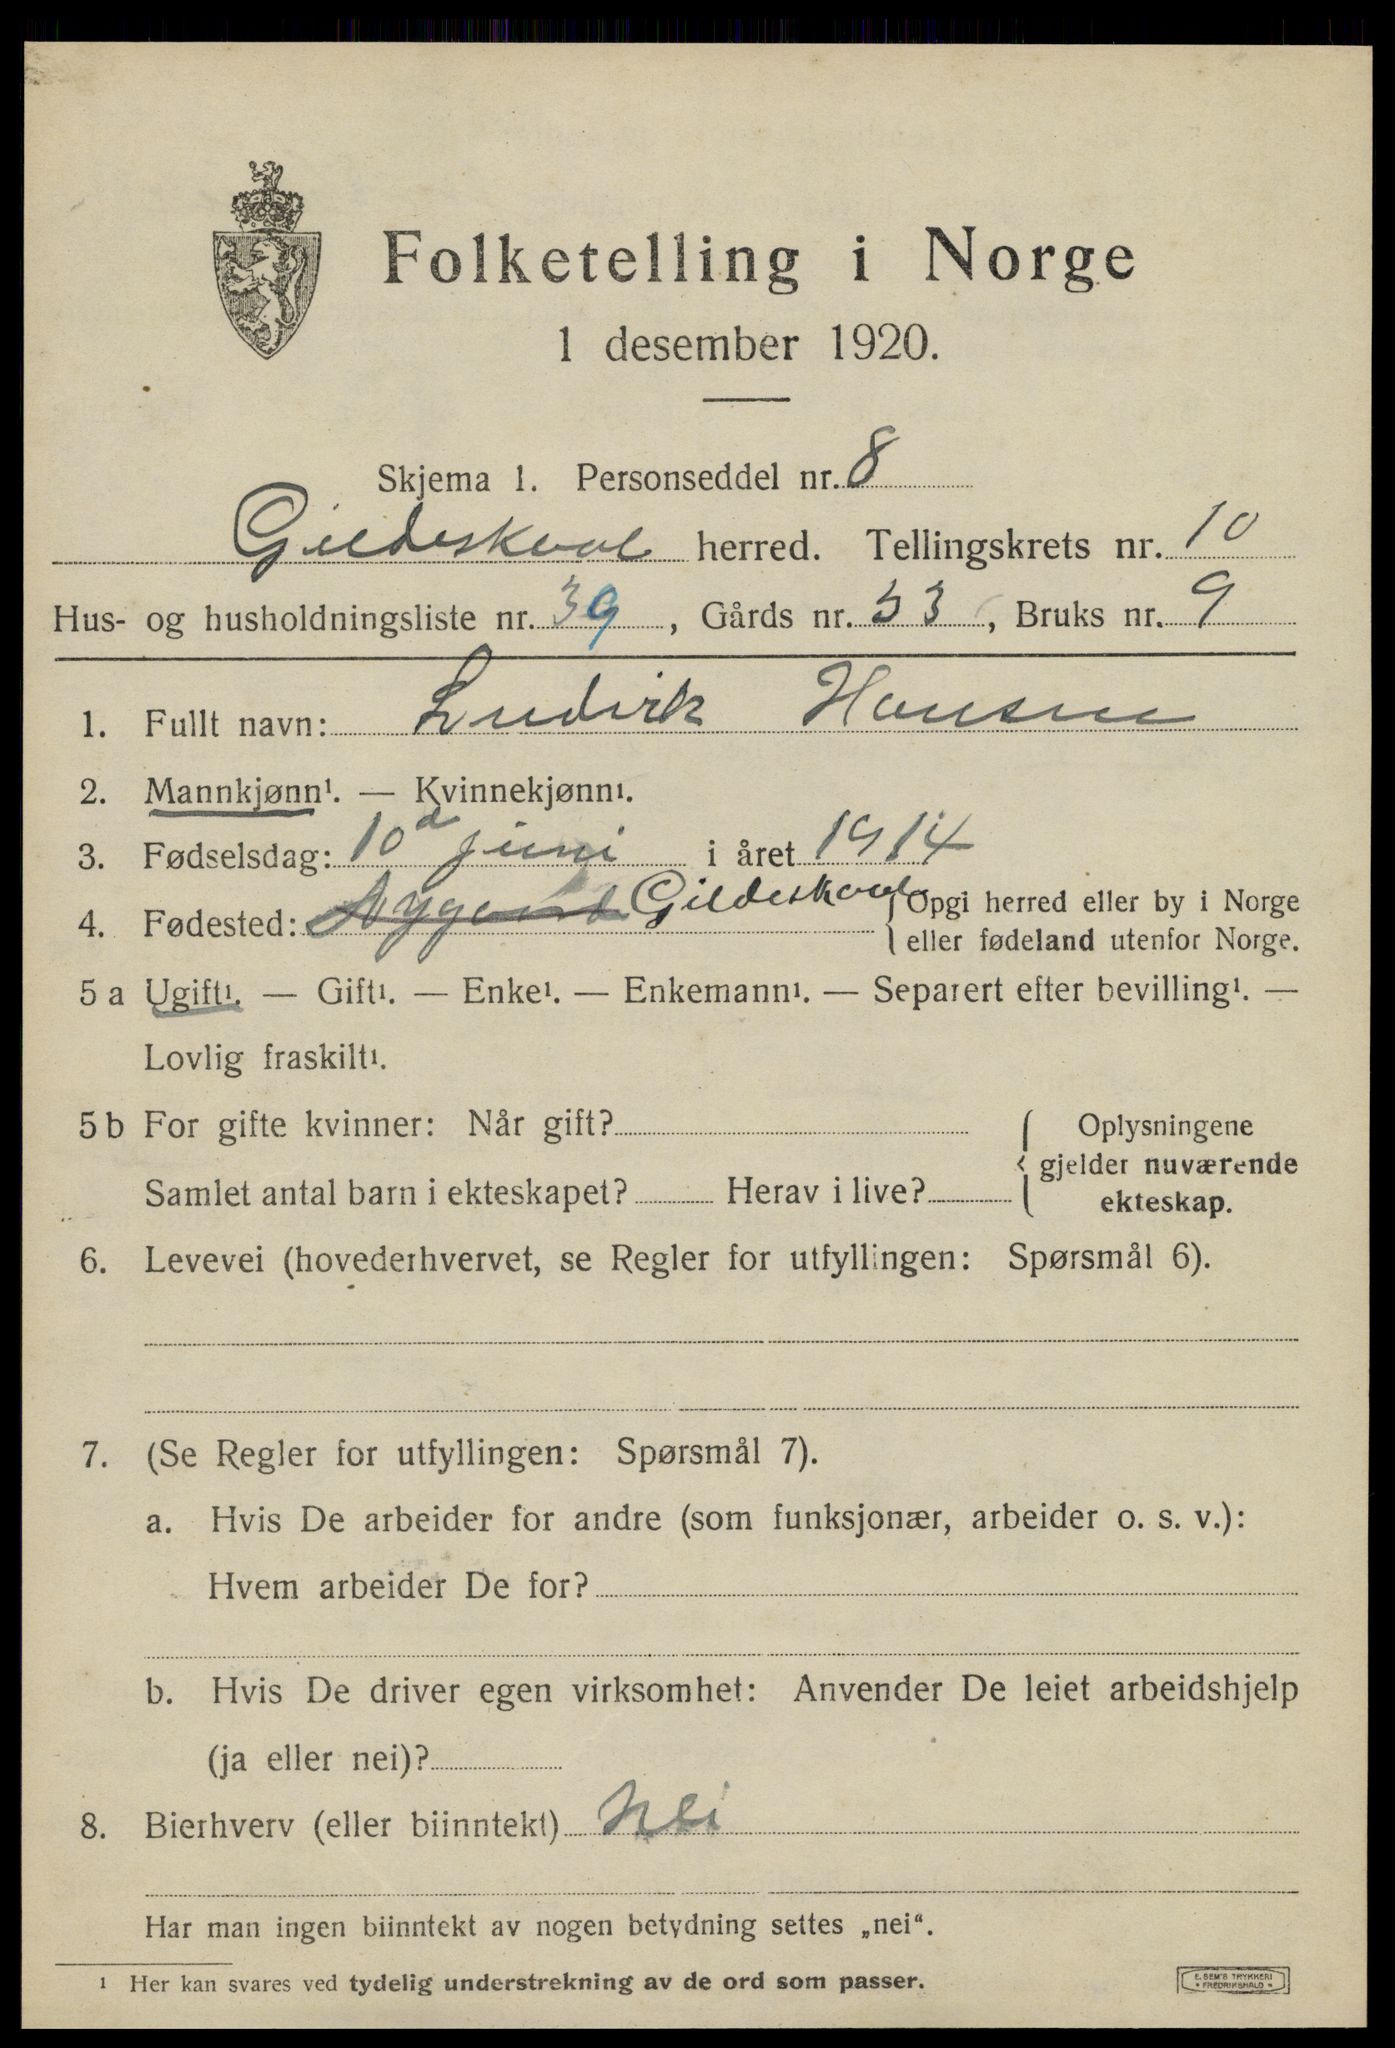 Folketelling i Norge
1 desember 1920.
Skjema 1. Personseddel nr. 8
Gildeskaal herred. Tellingskrets nr. 10
Hus- og husholdningsliste nr. 39, Gårds nr. 33, Bruks nr. 9
1. Fullt navn: Ludvik Hansen
2. Mannkjønn¹. — Kvinnekjønn¹.
3. Fødselsdag: 10d juni i året 1914
4. Fødested: Nygaard Gildeskaal {Opgi herred eller by i Norge
eller fødeland utenfor Norge.
5 a Ugift¹. — Gift¹. — Enke¹. — Enkemann¹. — Separert efter bevilling¹. —
Lovlig fraskilt¹.
5 b For gifte kvinner: Når gift? { Oplysningene
gjelder nuværende
Samlet antal barn i ekteskapet? Herav i live? ekteskap.
6. Levevei (hovederhvervet, se Regler for utfyllingen: Spørsmål 6).
7. (Se Regler for utfyllingen: Spørsmål 7).
a. Hvis De arbeider for andre (som funksjonær, arbeider o. s. v.):
Hvem arbeider De for?
b. Hvis De driver egen virksomhet: Anvender De leiet arbeidshjelp
(ja eller nei)?
8. Bierhverv (eller biinntekt) Nei
Har man ingen biinntekt av nogen betydning settes „nei“.
¹ Her kan svares ved tydelig understrekning av de ord som passer.
E. SEM'S TRYKKERI
* FREDRIKSHALD *